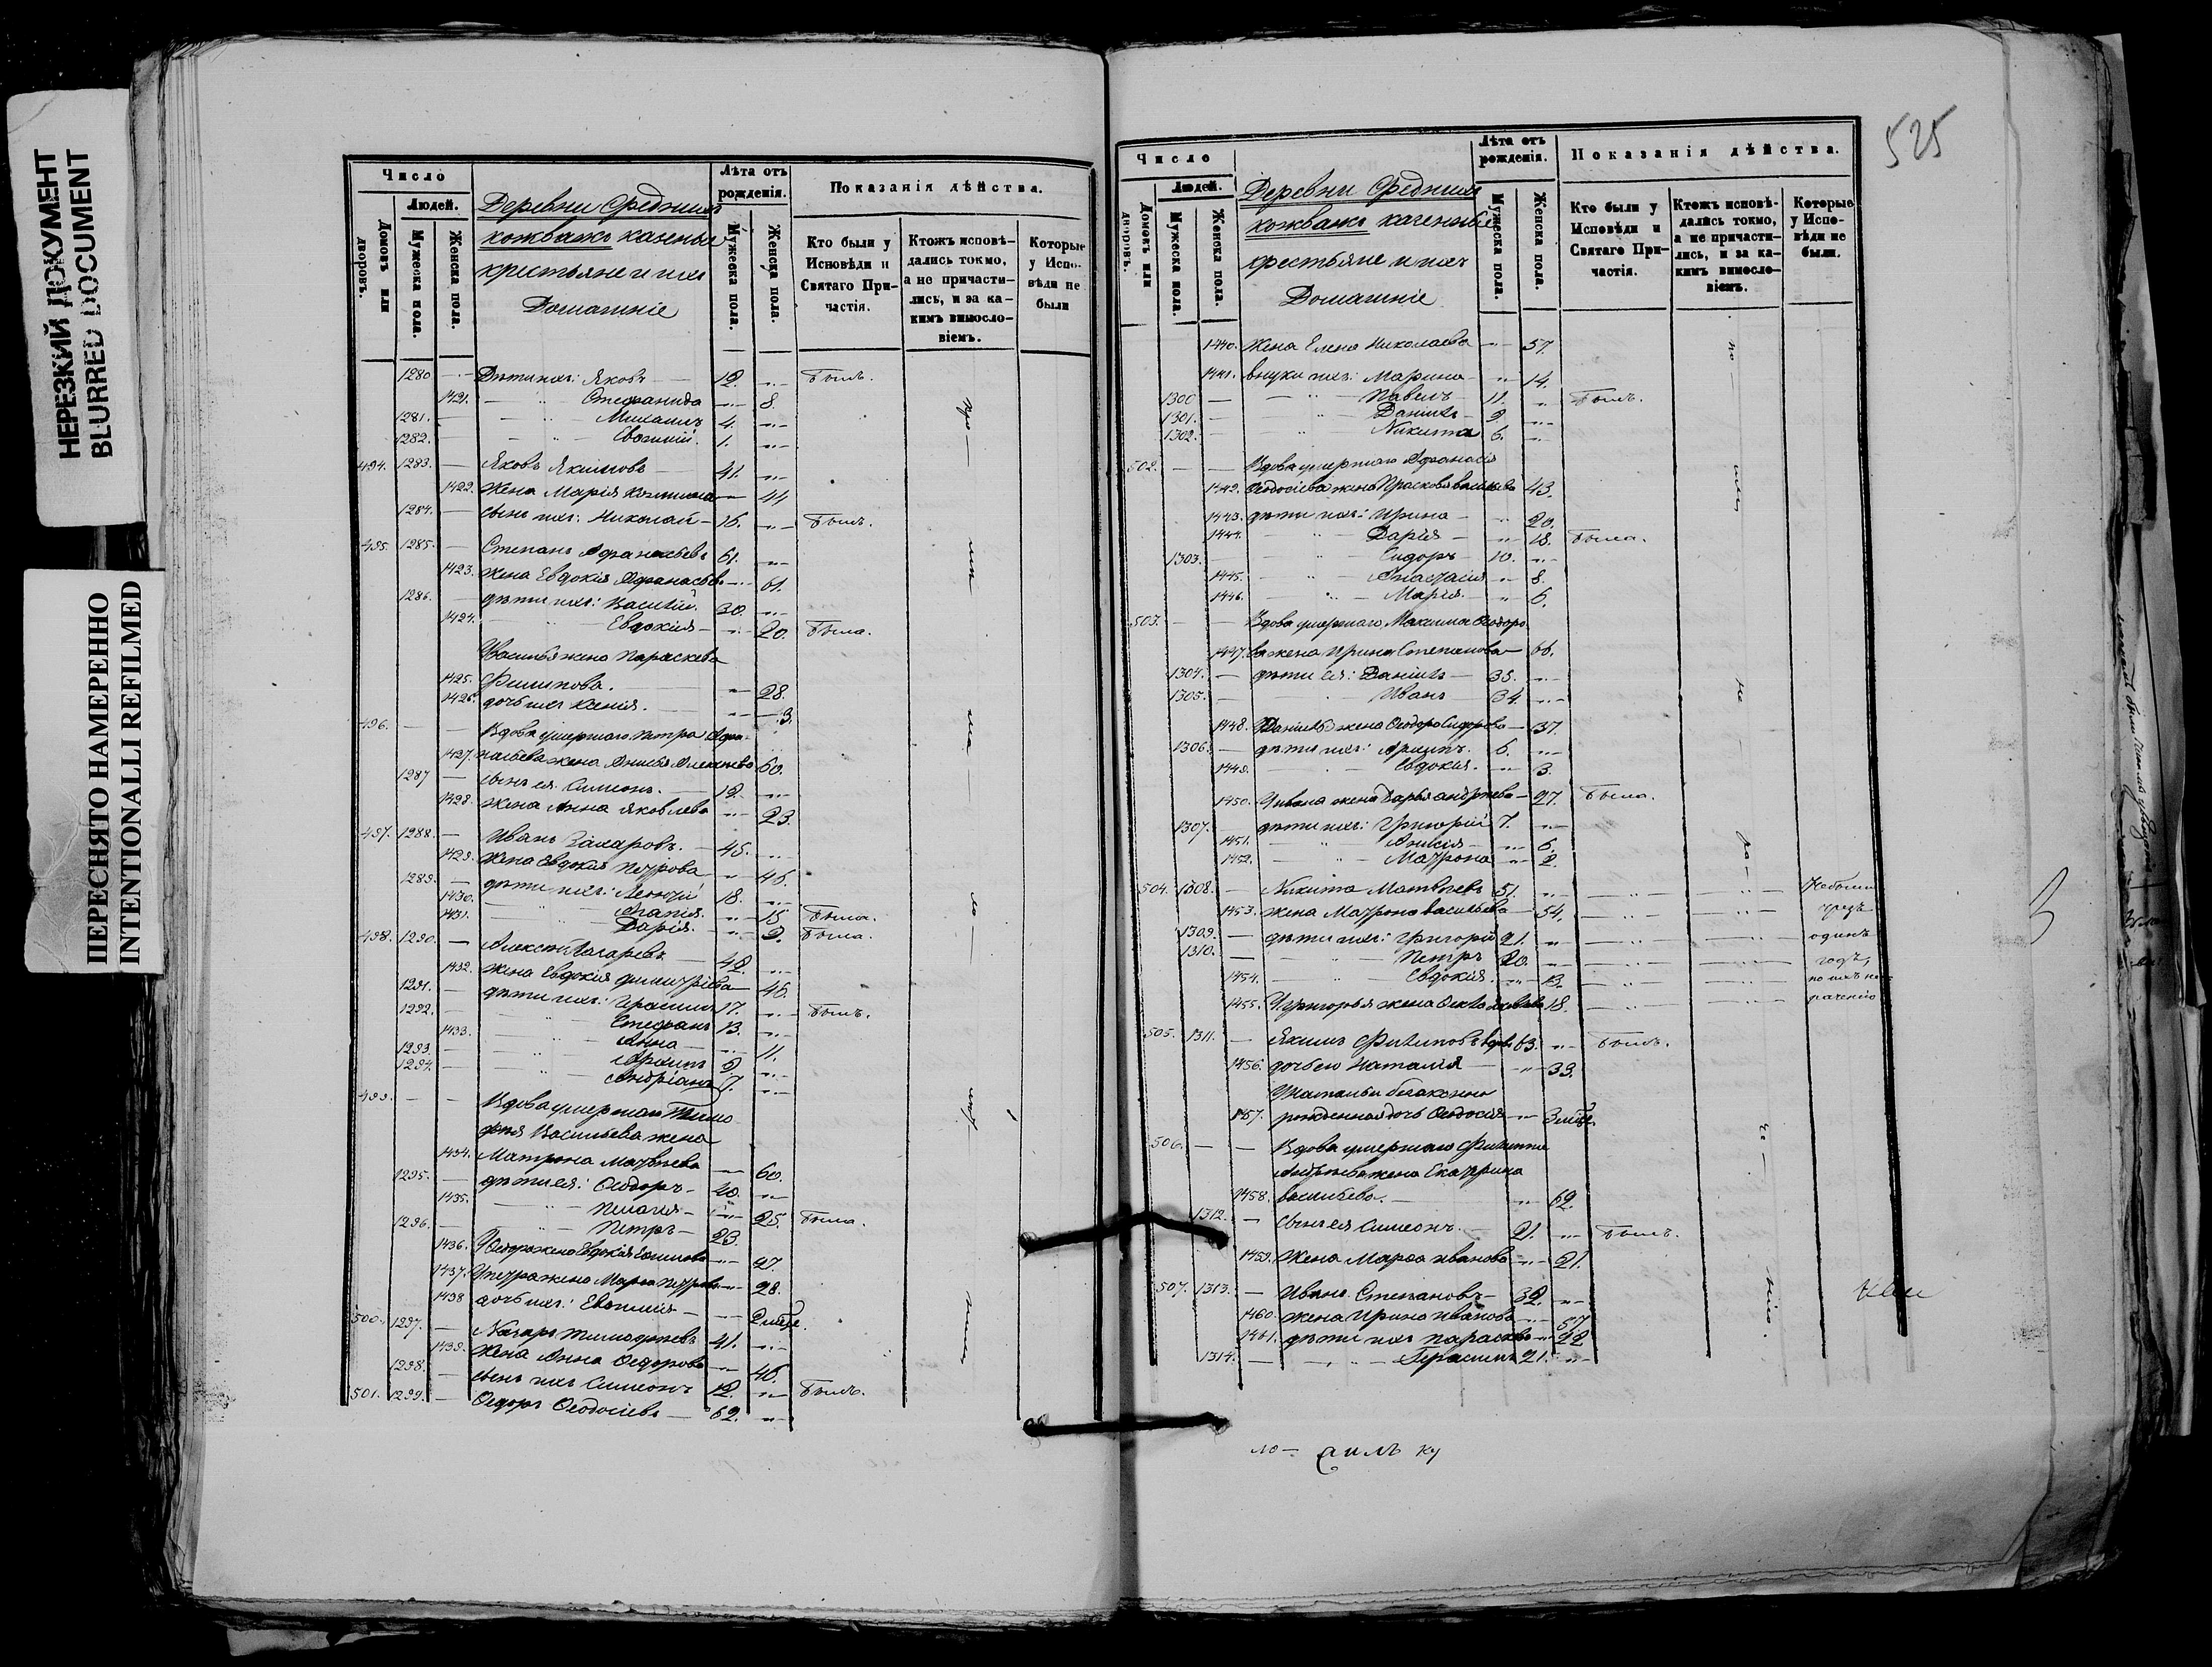 НЕРЕЗКИЙ ДОКУМЕНТ
BLURRED DOCUMENT
ПЕРЕСНЯТО НАМЕРЕННО
INTENTIONALLI REFILMED
Число
Людей.
Домовъ или дворовъ.
Мужеска пола.
Женска пола.
Деревни Среднихъ
кожважъ казенные
крестьяне и ихъ
Домашніе
Лѣта отъ рожденія.
Мужеска пола.
Женска пола.
Показанія дѣйства.
Кто были у Исповѣди и Святаго Причастія.
Ктожъ исповѣдались токмо, а не причастились, и за какимъ винословіемъ.
Которые у Исповѣди не были
1280 Дѣти ихъ: Яковъ 12. Былъ.
1421. Стефанида 8.
1281. Михаилъ 4.
1282. Евѳимій. 1.
494. 1283. Яковъ Якимовъ 41.
1422. Жена Марія 44
1284. сынъ ихъ: Николай 16. Былъ.
495. 1285. Степанъ Афанасьевъ 61.
1423. Жена Евдокія Афанасьева 61.
1286. дѣти ихъ: Василій. 30.
1424. Евдокія 20. Была.
У Василья жена Параскева
1425. Филипова. 28.
1426. дочь ихъ Ксенія. 3.
496. Вдова умершаго Петра Афа-
1427. насьева жена Анисья Алексѣева 60.
1287 сынъ ея Симеонъ. 19.
1428. Жена Анна Яковлева 23.
497. 1288. Иванъ Захаровъ. 45.
1429. Жена Евдокія Петрова 46.
1289. дѣти ихъ: Леонтій 18.
1430. Агапія. 15 Была.
1431. Дарія. 9. Была.
498. 1290. Алексѣй Лазаревъ 42.
1432. Жена Евдокія Димитріева 46.
1291. дѣти ихъ: Герасимъ 17.
1292. Стефанъ 13. Былъ.
1433. Анна 11.
1293. Архипъ 9.
1294. Андріанъ 7.
499. Вдова умершаго Тимо
фея Васильева жена
1434. Матрона Матвѣева 60.
1295. дѣти ея: Ѳеодоръ 40.
1435. Пелагія 25. Была.
1296. Петръ 23.
1436. У Ѳеодора жена Евдокія 27.
1437. У петра жена Марѳа Петрова 28.
1438 дочь ихъ: Евѳимія 2 мѣсе.
500. 1297. Назаръ Тимофѣевъ 41.
1439. Жена Анна Ѳедорова 46.
1298. сынъ ихъ Симеонъ 12. Былъ.
501. 1299. Ѳедоръ Ѳеодосіевъ 62.
525
Число
Людей.
Домовъ или дворовъ.
Мужеска пола.
Женска пола.
Деревни Среднихъ
кожважъ казенные
крестьяне и ихъ
Домашніе
Лѣта отъ рожденія.
Мужеска пола.
Женска пола.
Показанія дѣйства.
Кто были у Исповѣди и Святаго Причастія.
Ктожъ исповѣдались токмо, а не причастились, и за какимъ винословіемъ.
Которые у Исповѣди не были.
1440. Жена Елена Николаева 57.
1441. внуки ихъ: Марина 14.
1300 Павелъ 11. Былъ.
1301. Даніилъ 9.
1302. Никита 6.
502. Вдова умершаго Афанасія
1442. Ѳеодосіева жена Прасковья васильева 43.
1443. дѣти ихъ: Ирина 20.
1444. Дарія 18. Была.
1303. Сидоръ 10.
1445. Анастасія 8.
1446. Марія 6.
503. Вдова умершаго Максима Ѳеодоро
1447. ва жена Ирина Степанова 66.
1304. дѣти ея: Даніилъ 35.
1305. Иванъ 34.
1448. У Даніила жена Ѳеодора Сидорова 37.
1306. дѣти ихъ: Архипъ. 6.
1449. Евдокія. 3.
1450. У ивана жена Дарья андрѣева 27. Была.
1307. дѣти ихъ: Григорій 7.
1451. Анисія 6.
1452. Матрона 2.
504. 1308. Никита Матвѣевъ 51. Небыли
1453. Жена Матрона васильева 54. чрезъ
1309. дѣти ихъ: Григорій 21. одинъ
1310. Петръ 20. годъ,
1454. Евдокія. 13. по ихъ не-
1455. У григорья жена Ѳекла 18. раченію
505. 1311. Якимъ Филиповъ вдов. 63. Былъ.
1456. дочь его Наталія 39.
У натальи безаконно
1457. рожденная дочь Ѳеодосія 3 мѣсе.
506. Вдова умершаго Филиппа
Андрѣева жена Екатерина
1458. васильева. 62.
1312. сынъ ея Симеонъ. 21. Былъ.
1459. Жена Марѳа иванова 21.
507. 1313. Иванъ Степановъ 32.
1460. жена Ирина иванова 57
1461. дѣти ихъ параскева 22
1314. Герасимъ 21.